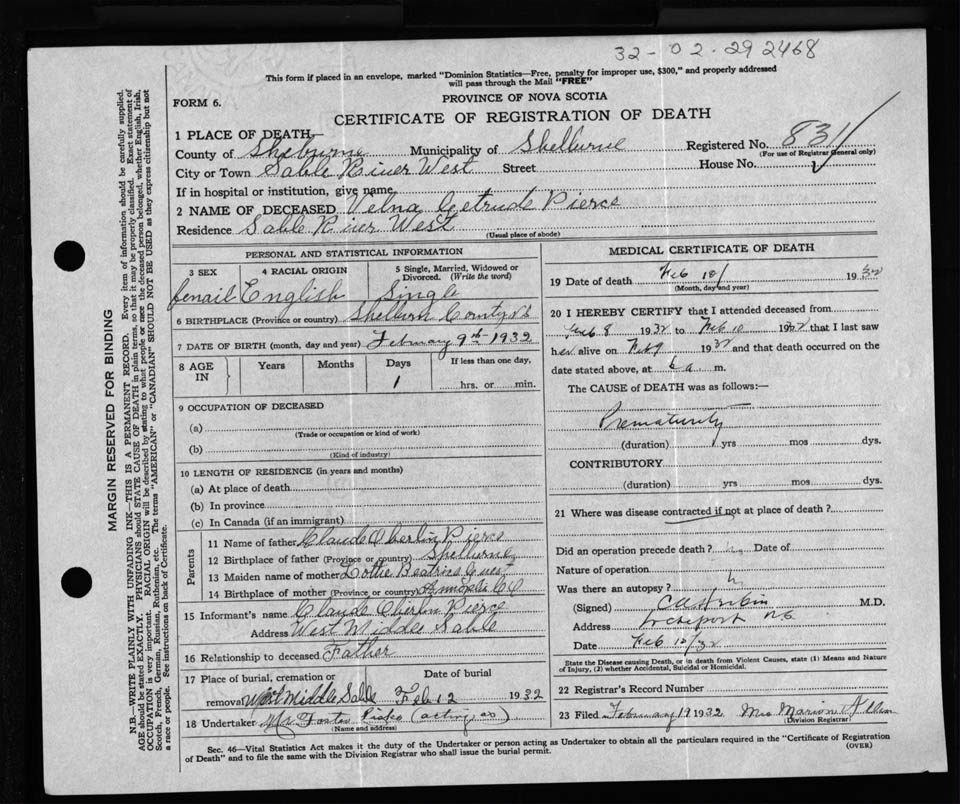 32-02-292468
This form if placed in an envelope, marked "Dominion Statistics—Free, penalty for improper use, $300," and properly addressed
will pass through the Mail "FREE"
FORM 6.
PROVINCE OF NOVA SCOTIA
CERTIFICATE OF REGISTRATION OF DEATH
1 PLACE OF DEATH—
County of Shelburne Municipality of Shelburne Registered No. 831
(For use of Registrar General only)
City or Town Sable River West Street House No.
If in hospital or institution, give name
2 NAME OF DECEASED Velna Getrude Pierce
Residence Sable River West
(Usual place of abode)
PERSONAL AND STATISTICAL INFORMATION
3 SEX 4 RACIAL ORIGIN 5 Single, Married, Widowed or
Divorced. (Write the word)
femail English Single
6 BIRTHPLACE (Province or country) Shelburn County NS
7 DATE OF BIRTH (month, day and year) February 9th 1932
8 AGE IN Years Months Days If less than one day,
1 hrs. or min.
9 OCCUPATION OF DECEASED
(a)
(Trade or occupation or kind of work)
(b)
(Kind of industry)
10 LENGTH OF RESIDENCE (in years and months)
(a) At place of death
(b) In province
(c) In Canada (if an immigrant)
Parents
11 Name of father Claude Oberlin Pierce
12 Birthplace of father (Province or country) Shelburne
13 Maiden name of mother Lottie Beatrice
14 Birthplace of mother (Province or country) Annapolis Co
15 Informant's name Claude Oberlin Pierce
Address West Middle Sable
16 Relationship to deceased Father
17 Place of burial, cremation or Date of burial
removal West Middle Sable Feb 12 1932
18 Undertaker Mr Foster (acting as)
(Name and address)
MEDICAL CERTIFICATE OF DEATH
19 Date of death Feb 10 1932
(Month, day and year)
20 I HEREBY CERTIFY that I attended deceased from
Feb 8 1932 to Feb 10 1932 that I last saw
her alive on Feb 9 1932 and that death occurred on the
date stated above, at 6 a m.
The CAUSE of DEATH was as follows:—
Prematurity
(duration) yrs mos dys.
CONTRIBUTORY
(duration) yrs mos dys.
21 Where was disease contracted if not at place of death?
Did an operation precede death? Date of
Nature of operation
Was there an autopsy?
(Signed) M.D.
Address Lockeport N.S.
Date Feb 10/32
State the Disease causing Death, or in death from Violent Causes, state (1) Means and Nature
of Injury, (2) whether Accidental, Suicidal or Homicidal.
22 Registrar's Record Number
23 Filed February 19 1932 Mrs Marion
Division Registrar
Sec. 46—Vital Statistics Act makes it the duty of the Undertaker or person acting as Undertaker to obtain all the particulars required in the "Certificate of Registration
of Death" and to file the same with the Division Registrar who shall issue the burial permit. (OVER)
MARGIN RESERVED FOR BINDING
N.B.—WRITE PLAINLY WITH UNFADING INK—THIS IS A PERMANENT RECORD. Every item of information should be carefully supplied.
AGE should be stated EXACTLY. PHYSICIANS should STATE CAUSE OF DEATH in plain terms, so that it may be properly classified. Exact statement of
OCCUPATION is very important. RACIAL ORIGIN will be described by stating to what people or race the deceased person belonged, whether English, Irish,
Scotch, French, German, Russian, Ruthenian, etc. The terms "AMERICAN" or "CANADIAN" SHOULD NOT BE USED as they express citizenship but not
a race or people. See instructions on back of Certificate.